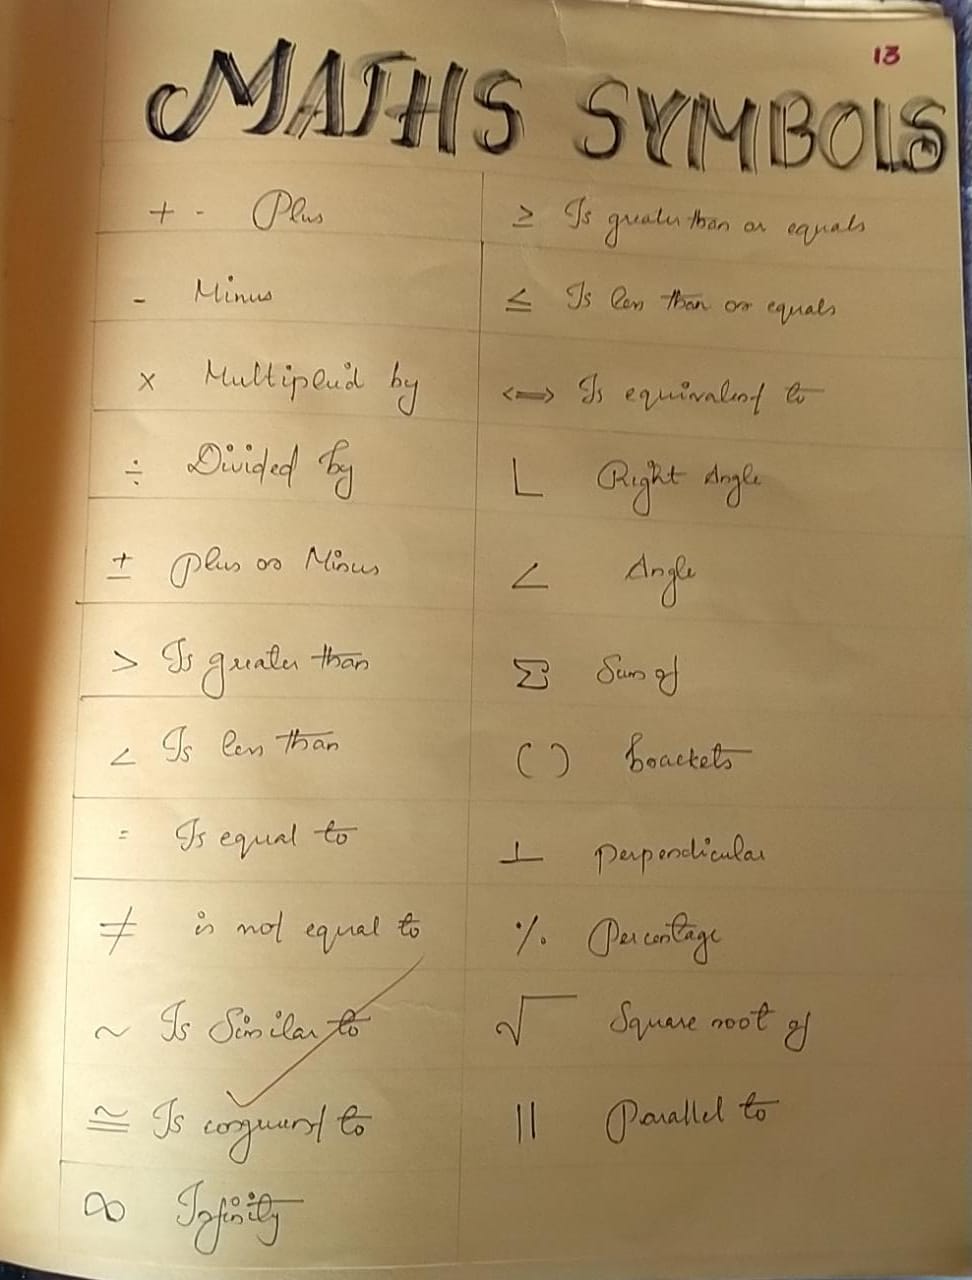 13
MATHS SYMBOLS
+ - Plus
- Minus
× Multiplied by
÷ Divided by
± Plus or Minus
> Is greater than
< Is less than
= Is equal to
≠ is not equal to
~ Is Similar to
≅ Is congruent to
∞ Infinity
≥ Is greater than or equals
≤ Is less than or equals
⟺ Is equivalent to
∟ Right Angle
∠ Angle
Σ Sum of
( ) brackets
⊥ perpendicular
% Percentage
√ Square root of
|| Parallel to